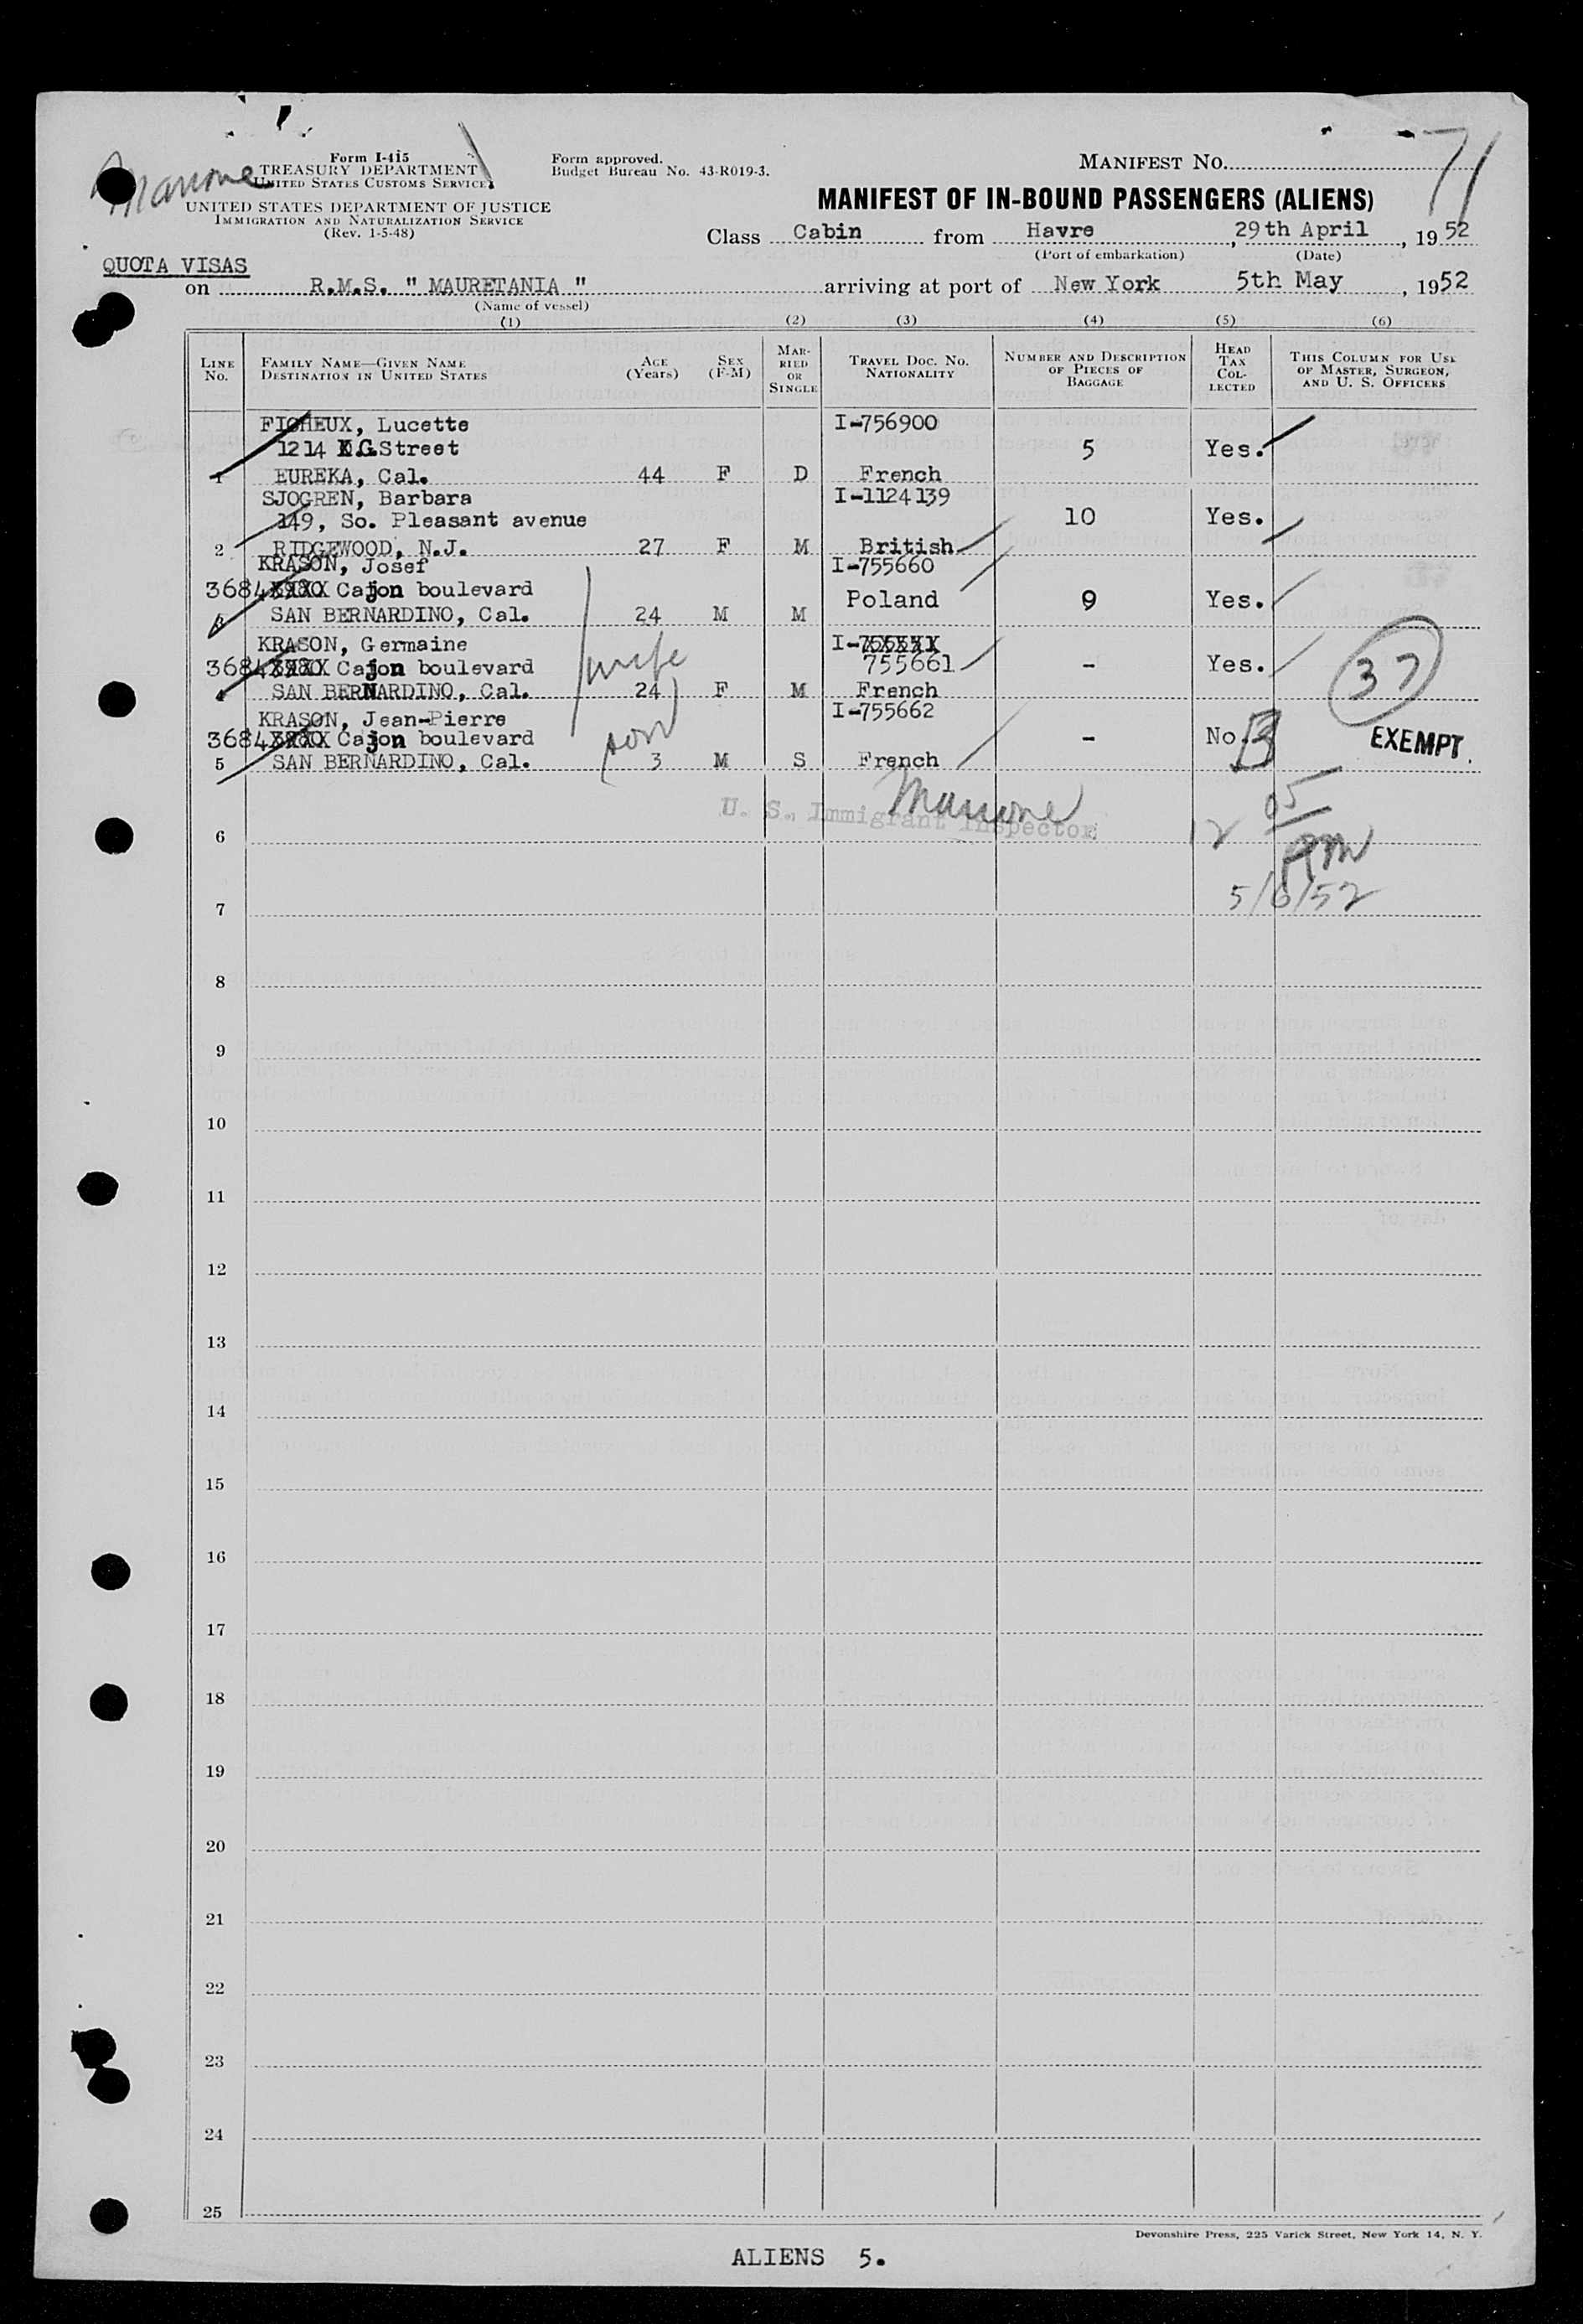 Manione
Form I-415
TREASURY DEPARTMENT
UNITED STATES CUSTOMS SERVICE
UNITED STATES DEPARTMENT OF JUSTICE
IMMIGRATION AND NATURALIZATION SERVICE
(Rev. 1-5-48)
Form approved.
Budget Bureau No. 43-R019-3.
MANIFEST NO. 71
MANIFEST OF IN-BOUND PASSENGERS (ALIENS)
Class Cabin from Havre, 29th April, 1952
(Port of embarkation) (Date)
QUOTA VISAS
on R.M.S. " MAURETANIA " arriving at port of New York 5th May, 1952
(Name of vessel)
(1) (2) (3) (4) (5) (6)
LINE NO. FAMILY NAME—GIVEN NAME DESTINATION IN UNITED STATES AGE (Years) SEX (F-M) MARRIED OR SINGLE TRAVEL DOC. NO. NATIONALITY NUMBER AND DESCRIPTION OF PIECES OF BAGGAGE HEAD TAX COLLECTED THIS COLUMN FOR USE OF MASTER, SURGEON, AND U. S. OFFICERS
FICHEUX, Lucette I-756900
1214 G.Street 5 Yes.
1 EUREKA, Cal. 44 F D French
SJOGREN, Barbara I-1124139
149, So. Pleasant avenue 10 Yes.
2 RIDGEWOOD, N.J. 27 F M British
KRASON, Josef I-755660
3684 Cajon boulevard Poland 9 Yes.
3 SAN BERNARDINO, Cal. 24 M M
KRASON, Germaine I-
3684 Cajon boulevard wife 755661 - Yes. 37
4 SAN BERNARDINO, Cal. 24 F M French
KRASON, Jean-Pierre I-755662
3684 Cajon boulevard son - No. B EXEMPT.
5 SAN BERNARDINO, Cal. 3 M S French
Manione
U. S. Immigrant Inspector
12 05
6
PM
5/6/52
7
8
9
10
11
12
13
14
15
16
17
18
19
20
21
22
23
24
25
Devonshire Press, 225 Varick Street, New York 14, N. Y.
ALIENS 5.